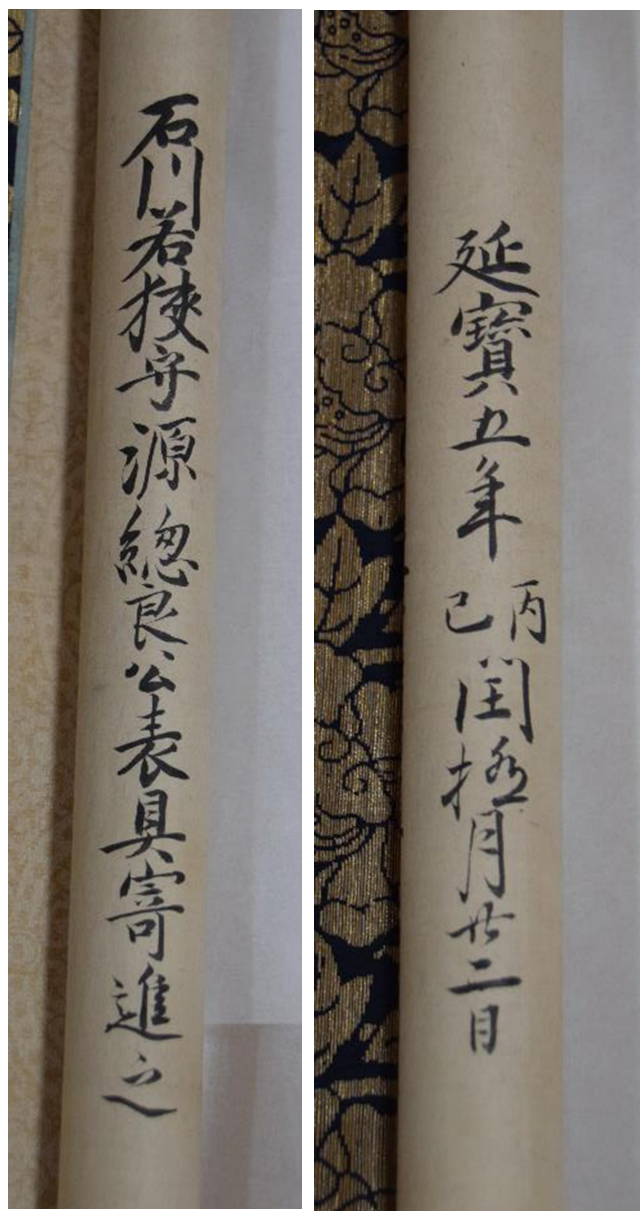 延寶五年丙巳閏極月廿二日
石川若狹守源總良公表具寄進之